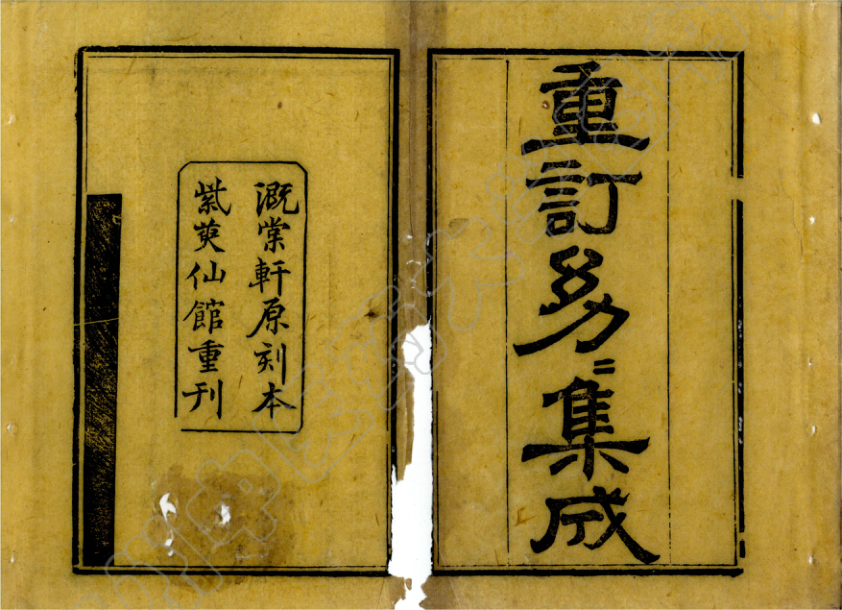 重訂幼〻集成
溉棠軒原刻本
紫萸仙館重刊